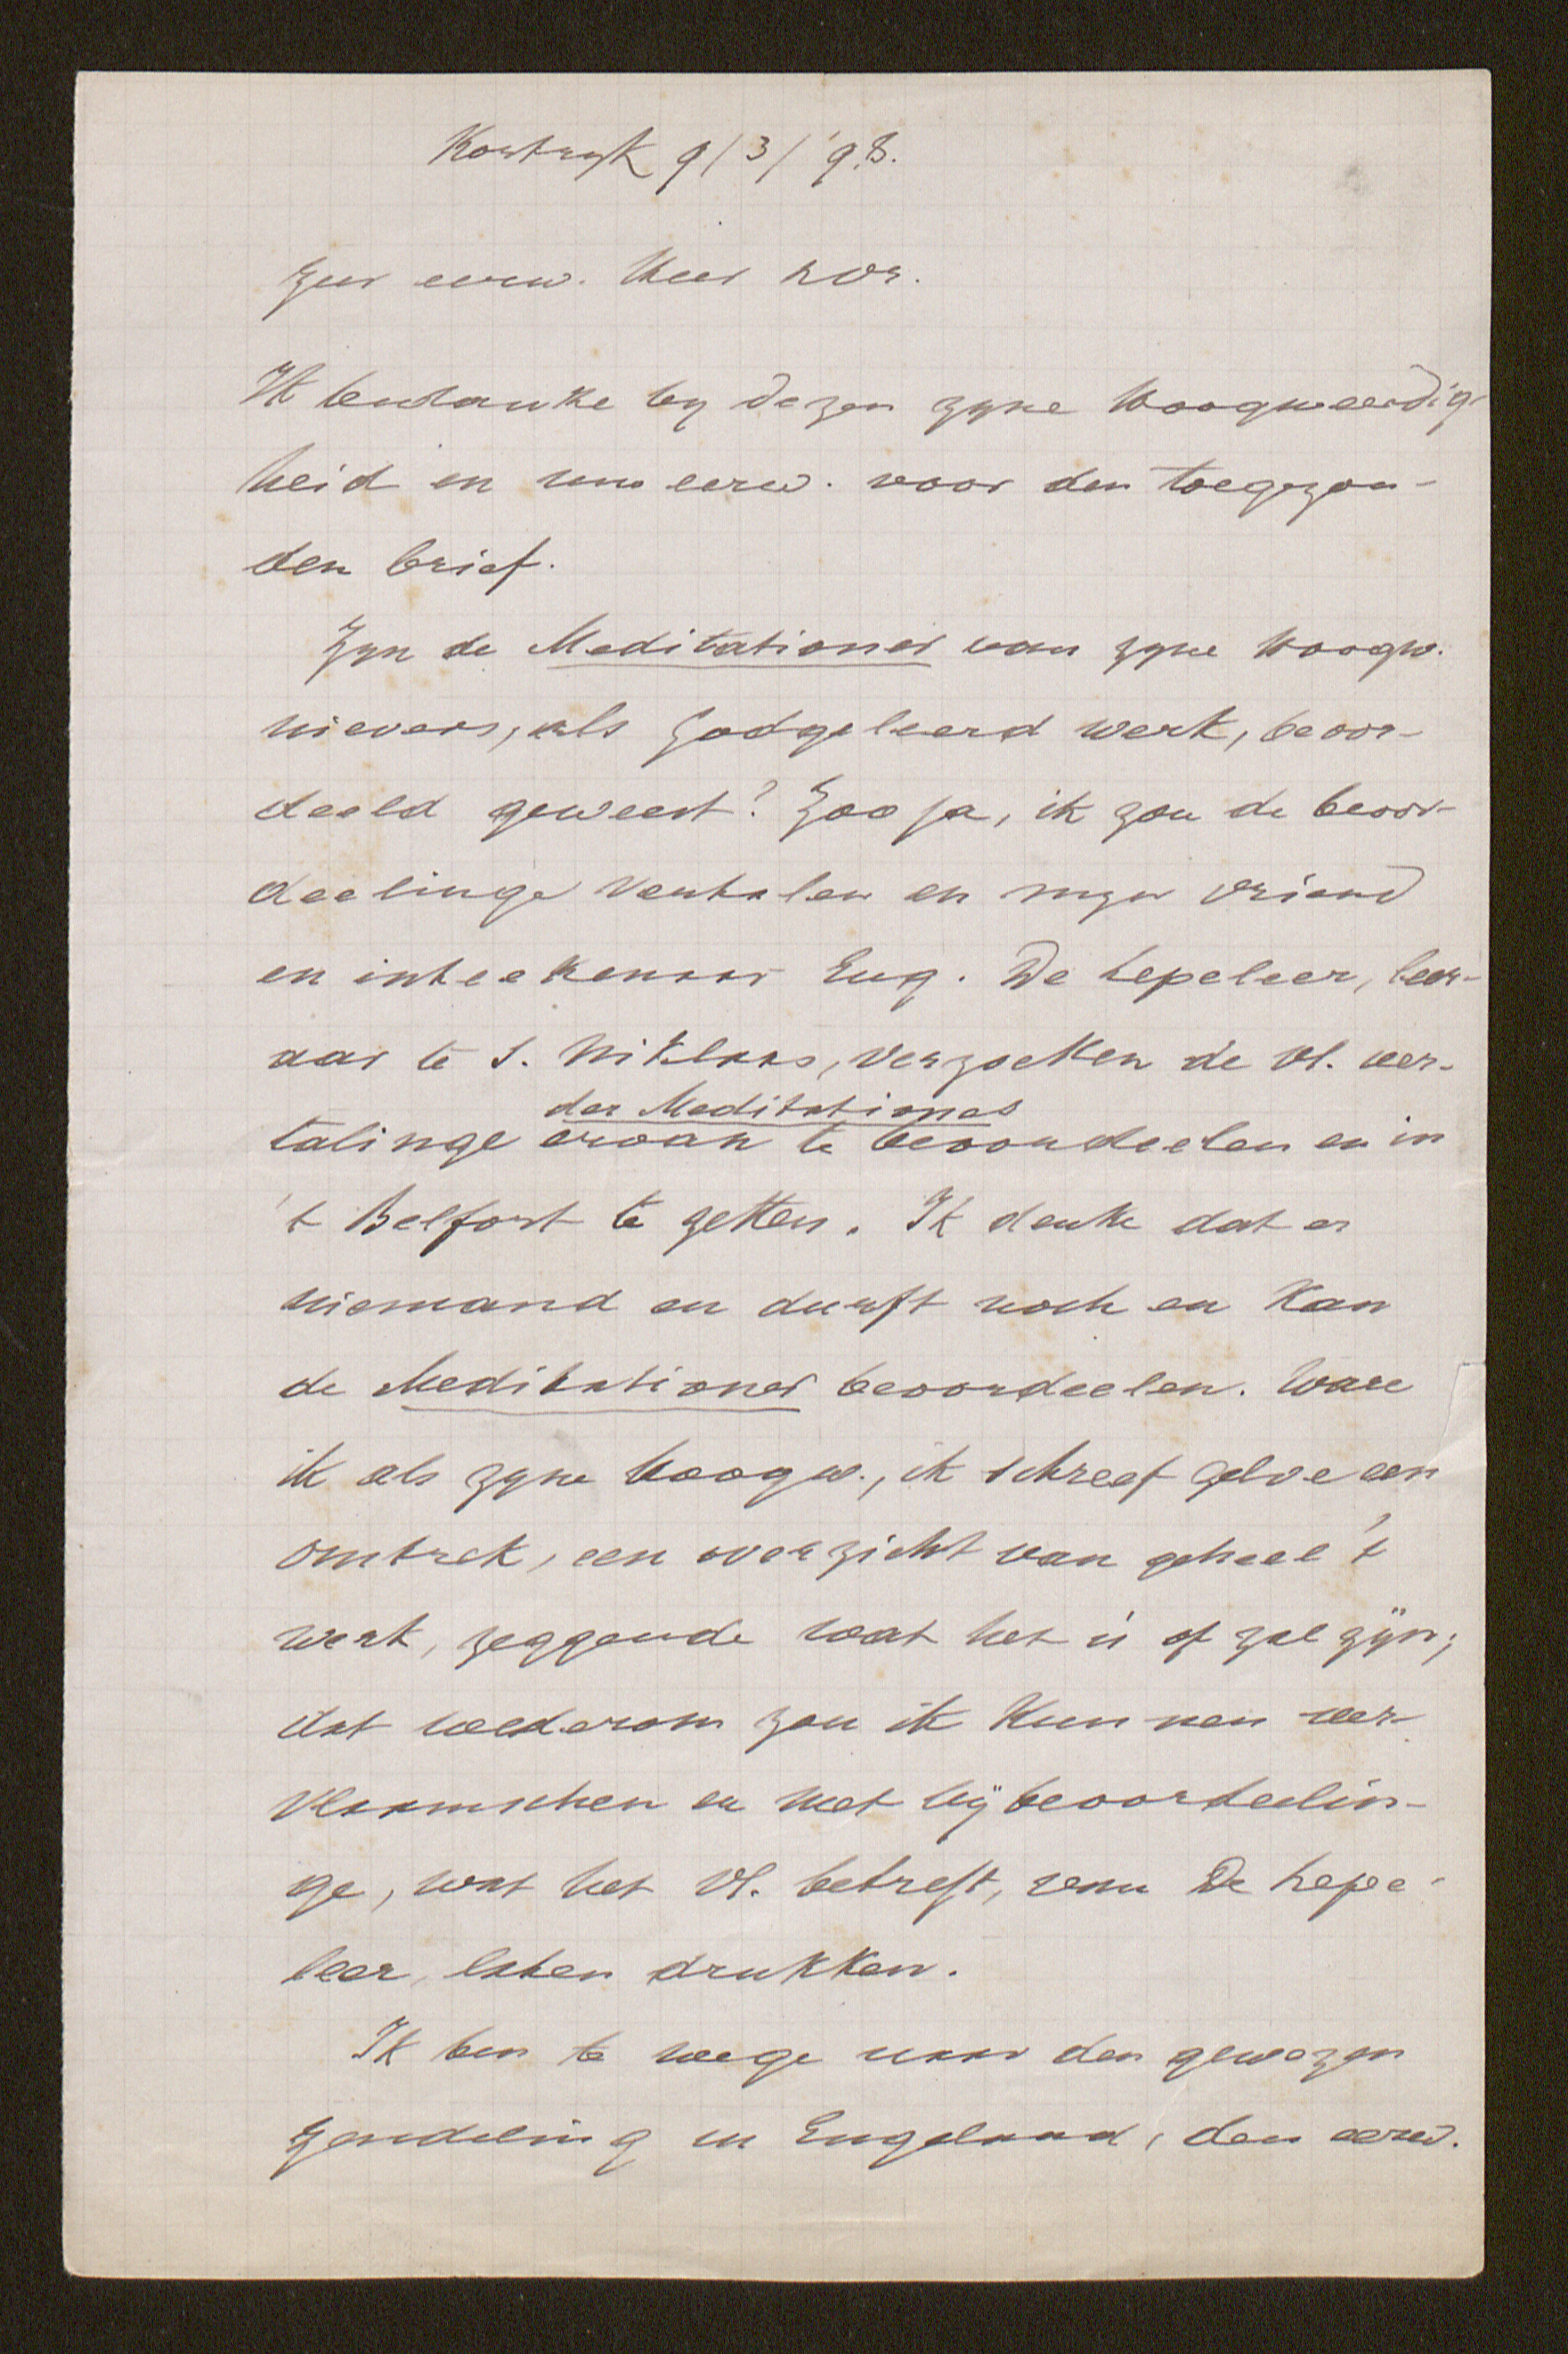 Kortryk 9/3/'98.
Zeer eerw. Heer
Ik bedanke by dezen zyne Hoogweerdig-
heid en uw eerw. voor den toegezon-
den brief.
Zyn de Meditationes van zyne Hoogw.
nievers, als godgeleerd werk, beoor-
deeld geweest? Zoo ja, ik zou de beoor-
deelinge vertalen en myn vriend
en inteekenaar Eug. De Lepeleer, leer-
aar te S. Niklaas, verzoeken de Vl. ver-
der Meditationes
talinge ervan te beoordeelen en in
't Belfort te zetten. Ik denke dat er
niemand en durft noch en kan
de Meditationes beoordeelen. Ware
ik als zyne Hoogw., ik schreef zelve een
omtrek, een overzicht van geheel 't
werk, zeggende wat het is of zal zijn;
dat wederom zou ik kunnen ver-
vlaamschen en met bijbeoordeelin-
ge, wat het Vl. betreft, van De Lepe-
leer, laten drukken.
Ik ben te wege naar den gewezen
zendeling in Engeland, den eerw.